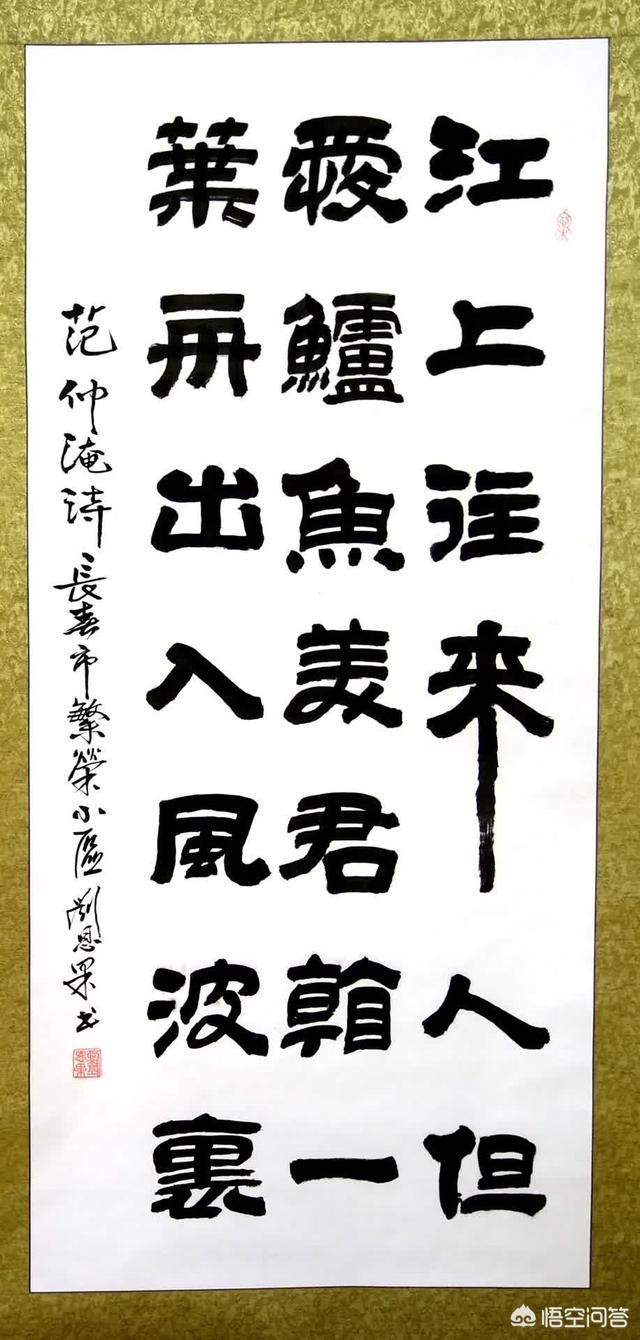 江上往来人但
愛鱸魚美君看一
葉舟出入風波裏
范仲淹诗長春市繁榮小區劉恩果书
悟空问答